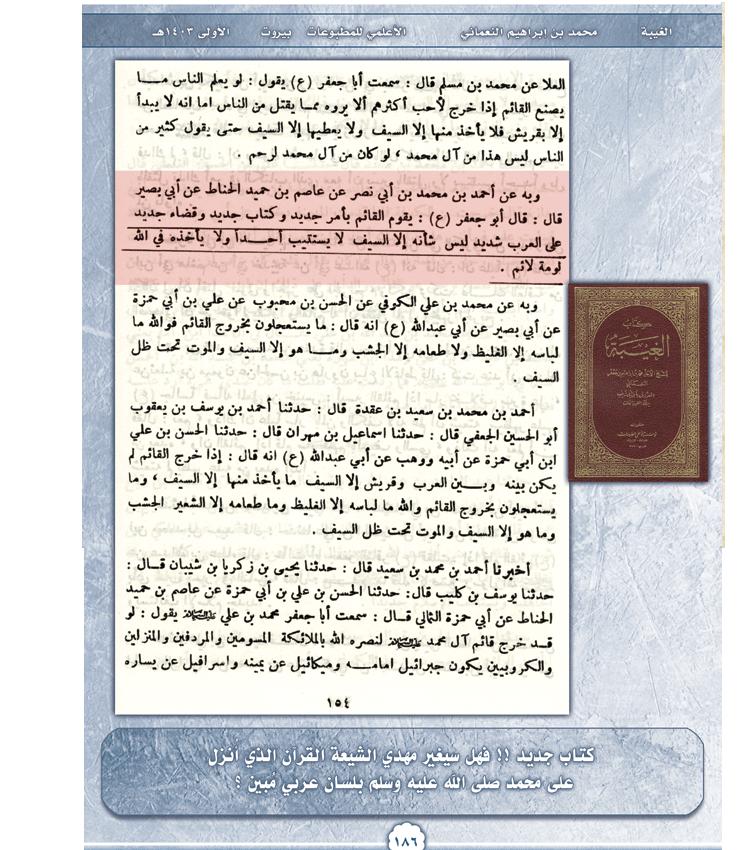 الغيبة محمد بن ابراهيم النعماني الأعلمي للمطبوعات بيروت الأولى ١٤٠٣هـ
العلا عن محمد بن مسلم قال : سمعت أبا جعفر (ع) يقول : لو يعلم الناس مـــا
يصنع القائم إذا خرج لأحب أكثرهم ألا يروه ممـا يقتل من الناس اما انه لا يبدأ
إلا بقريش فلا يأخذ منها إلا السيف ولا يعطيها إلا السيف حتى يقول كثير من
الناس ليس هذا من آل محمد ، لو كان من آل محمد لرحم .
وبه عن أحمد بن محمد بن أبي نصر عن عاصم بن حميد الحناط عن أبي بصير
قال : قال أبو جعفر (ع) : يقوم القائم بأمر جديد وكتاب جديد وقضاء جديد
على العرب شديد ليس شأنه إلا السيف لا يستتيب أحـــداً ولا يأخذه في الله
لومة لائم .
وبه عن محمد بن علي الكوفي عن الحسن بن محبوب عن علي بن أبي حمزة
عن أبي بصير عن أبي عبدالله (ع) انه قال : ما يستعجلون بخروج القائم فوالله ما
لباسه إلا الغليظ ولا طعامه إلا الجشب ومـــا هو إلا السيف والموت تحت ظل
السيف .
أحمد بن محمد بن سعيد بن عقدة قال : حدثنا أحمد بن يوسف بن يعقوب
أبو الحسين الجعفي قال : حدثنا اسماعيل بن مهران قال : حدثنا الحسن بن علي
ابن أبي حمزة عن أبيه ووهب عن أبي عبدالله (ع) انه قال : إذا خرج القائم لم
يكن بينه وبـــين العرب وقريش إلا السيف ما يأخذ منها إلا السيف ، وما
يستعجلون بخروج القائم والله ما لباسه إلا الغليظ وما طعامه إلا الشعير الجشب
وما هو إلا السيف والموت تحت ظل السيف .
أخبرنا أحمد بن محمد بن سعيد قال : حدثنا يحيى بن زكريا بن شيبان قـــال :
حدثنا يوسف بن كليب قال : حدثنا الحسن بن علي بن أبي حمزة عن عاصم بن حميد
الحناط عن أبي حمزة الثمالي قـــال : سمعت أبا جعفر محمد بن علي عليه السلام يقول : لو
قـــد خرج قائم آل محمد عليه السلام لنصره الله بالملائـكة المسومين والمردفين والمنزلين
والكروبيين يكون جبرائيل امامـــه وميكائيل عن يمينه واسرافيل عن يساره
١٥٤
كتاب
الغيبة
كتاب جديد !! فهل سيغير مهدي الشيعة القرآن الذي أنزل
على محمد صلى الله عليه وسلم بلسان عربي مُبين ؟
١٨٦